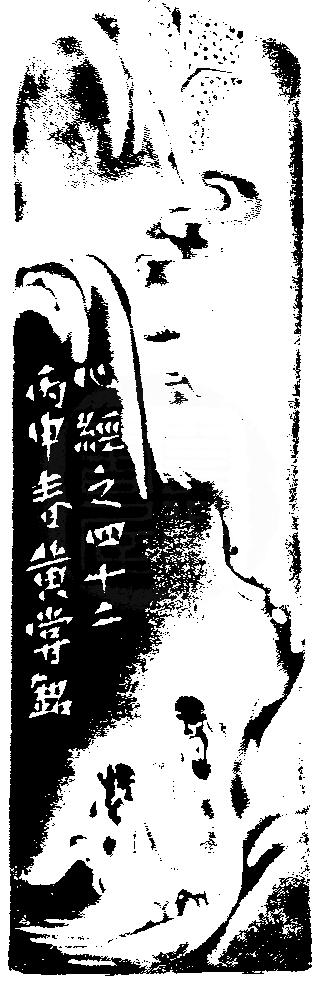 心經之四十二
丙申春黄嘗銘